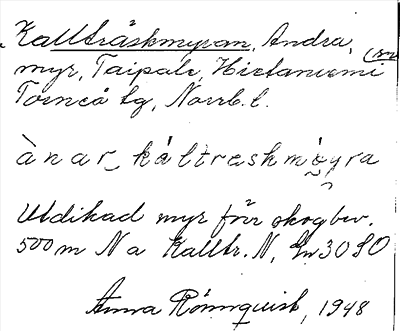 Kallträskmyran, Andra,
myr, Taipale, Hietaniemi (sn
Torneå tg, Norrb. l.
ànar‿ káltreskmòyra
Utdikad myr för skogbev.
500 m N a Kalltr. N, 30 SO
Anna Rönnquist, 1948